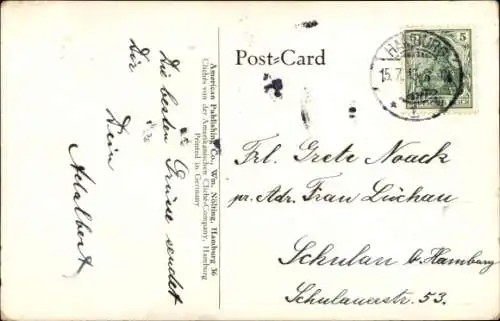 Die besten Grüsse sendet
Dir
Dein
Adalbert
American Publishing Co., Wm. Nölting, Hamburg 36
Clichés von der Amerikanischen Cliché-Company, Hamburg
Printed in Germany
Post-Card
HAMBURG
15.7.
5
DEUTSCHES REICH
Frl. Grete Noack
pr. Adr. Frau Lüchau
Schulau b. Hamburg
Schulauerstr. 53.